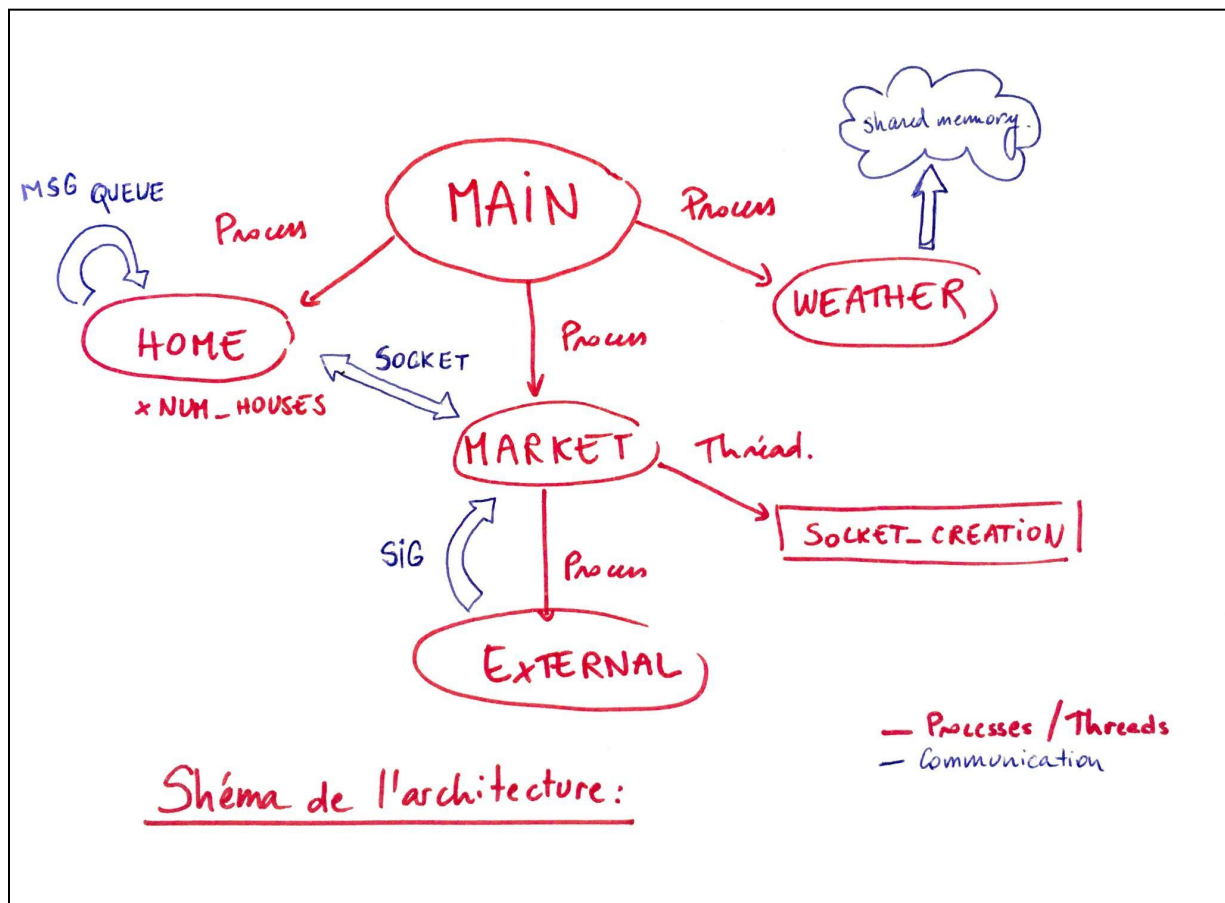 shared memmory.
MSG QUEUE
MAIN
Process
Process
WEATHER
HOME
Process
SOCKET
x NUM_HOUSES
MARKET
Thréad.
SOCKET_CREATION
SIG
Process
EXTERNAL
— Processes / Threads
— Communication
Shéma de l'architecture :